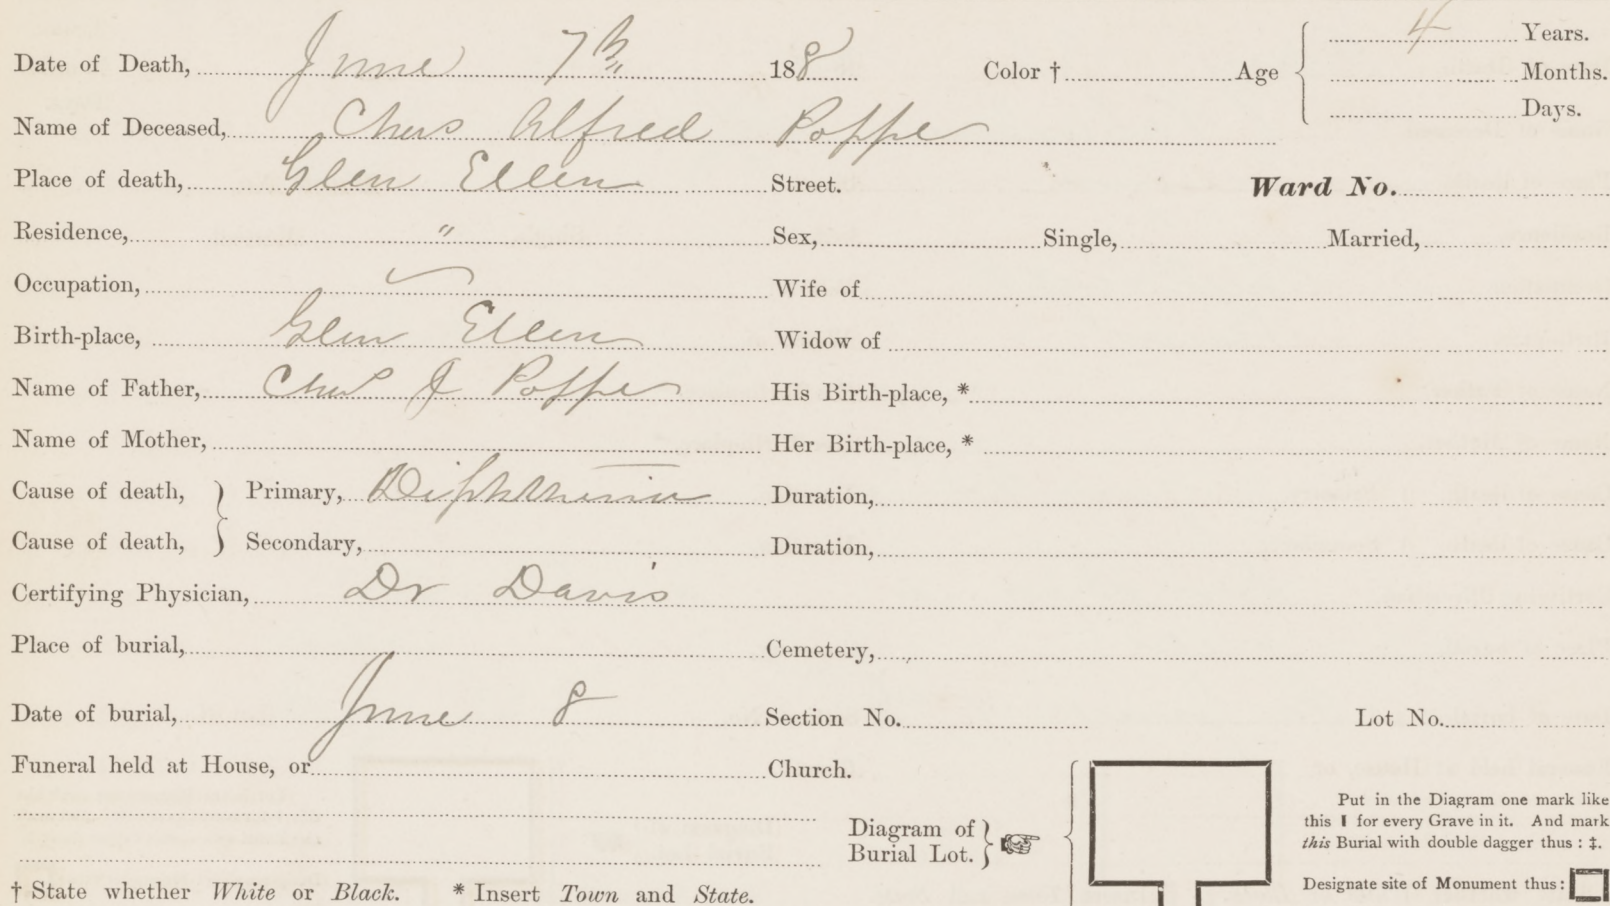 Date of Death, June 7th 188 Color † Age 4 Years.
Months.
Days.
Name of Deceased, Chas Alfred Poppe
Place of death, Glen Ellen Street. Ward No.
Residence, " Sex, Single, Married,
Occupation, Wife of
Birth-place, Glen Ellen Widow of
Name of Father, Chas J Poppe His Birth-place, *
Name of Mother, Her Birth-place, *
Cause of death, } Primary, Diphtheria Duration,
Cause of death, } Secondary, Duration,
Certifying Physician, Dr Davis
Place of burial, Cemetery,
Date of burial, June 8 Section No. Lot No.
Funeral held at House, or Church.
Diagram of
Burial Lot.
Put in the Diagram one mark like
this ❙ for every Grave in it. And mark
this Burial with double dagger thus : ‡.
Designate site of Monument thus :
† State whether White or Black. * Insert Town and State.